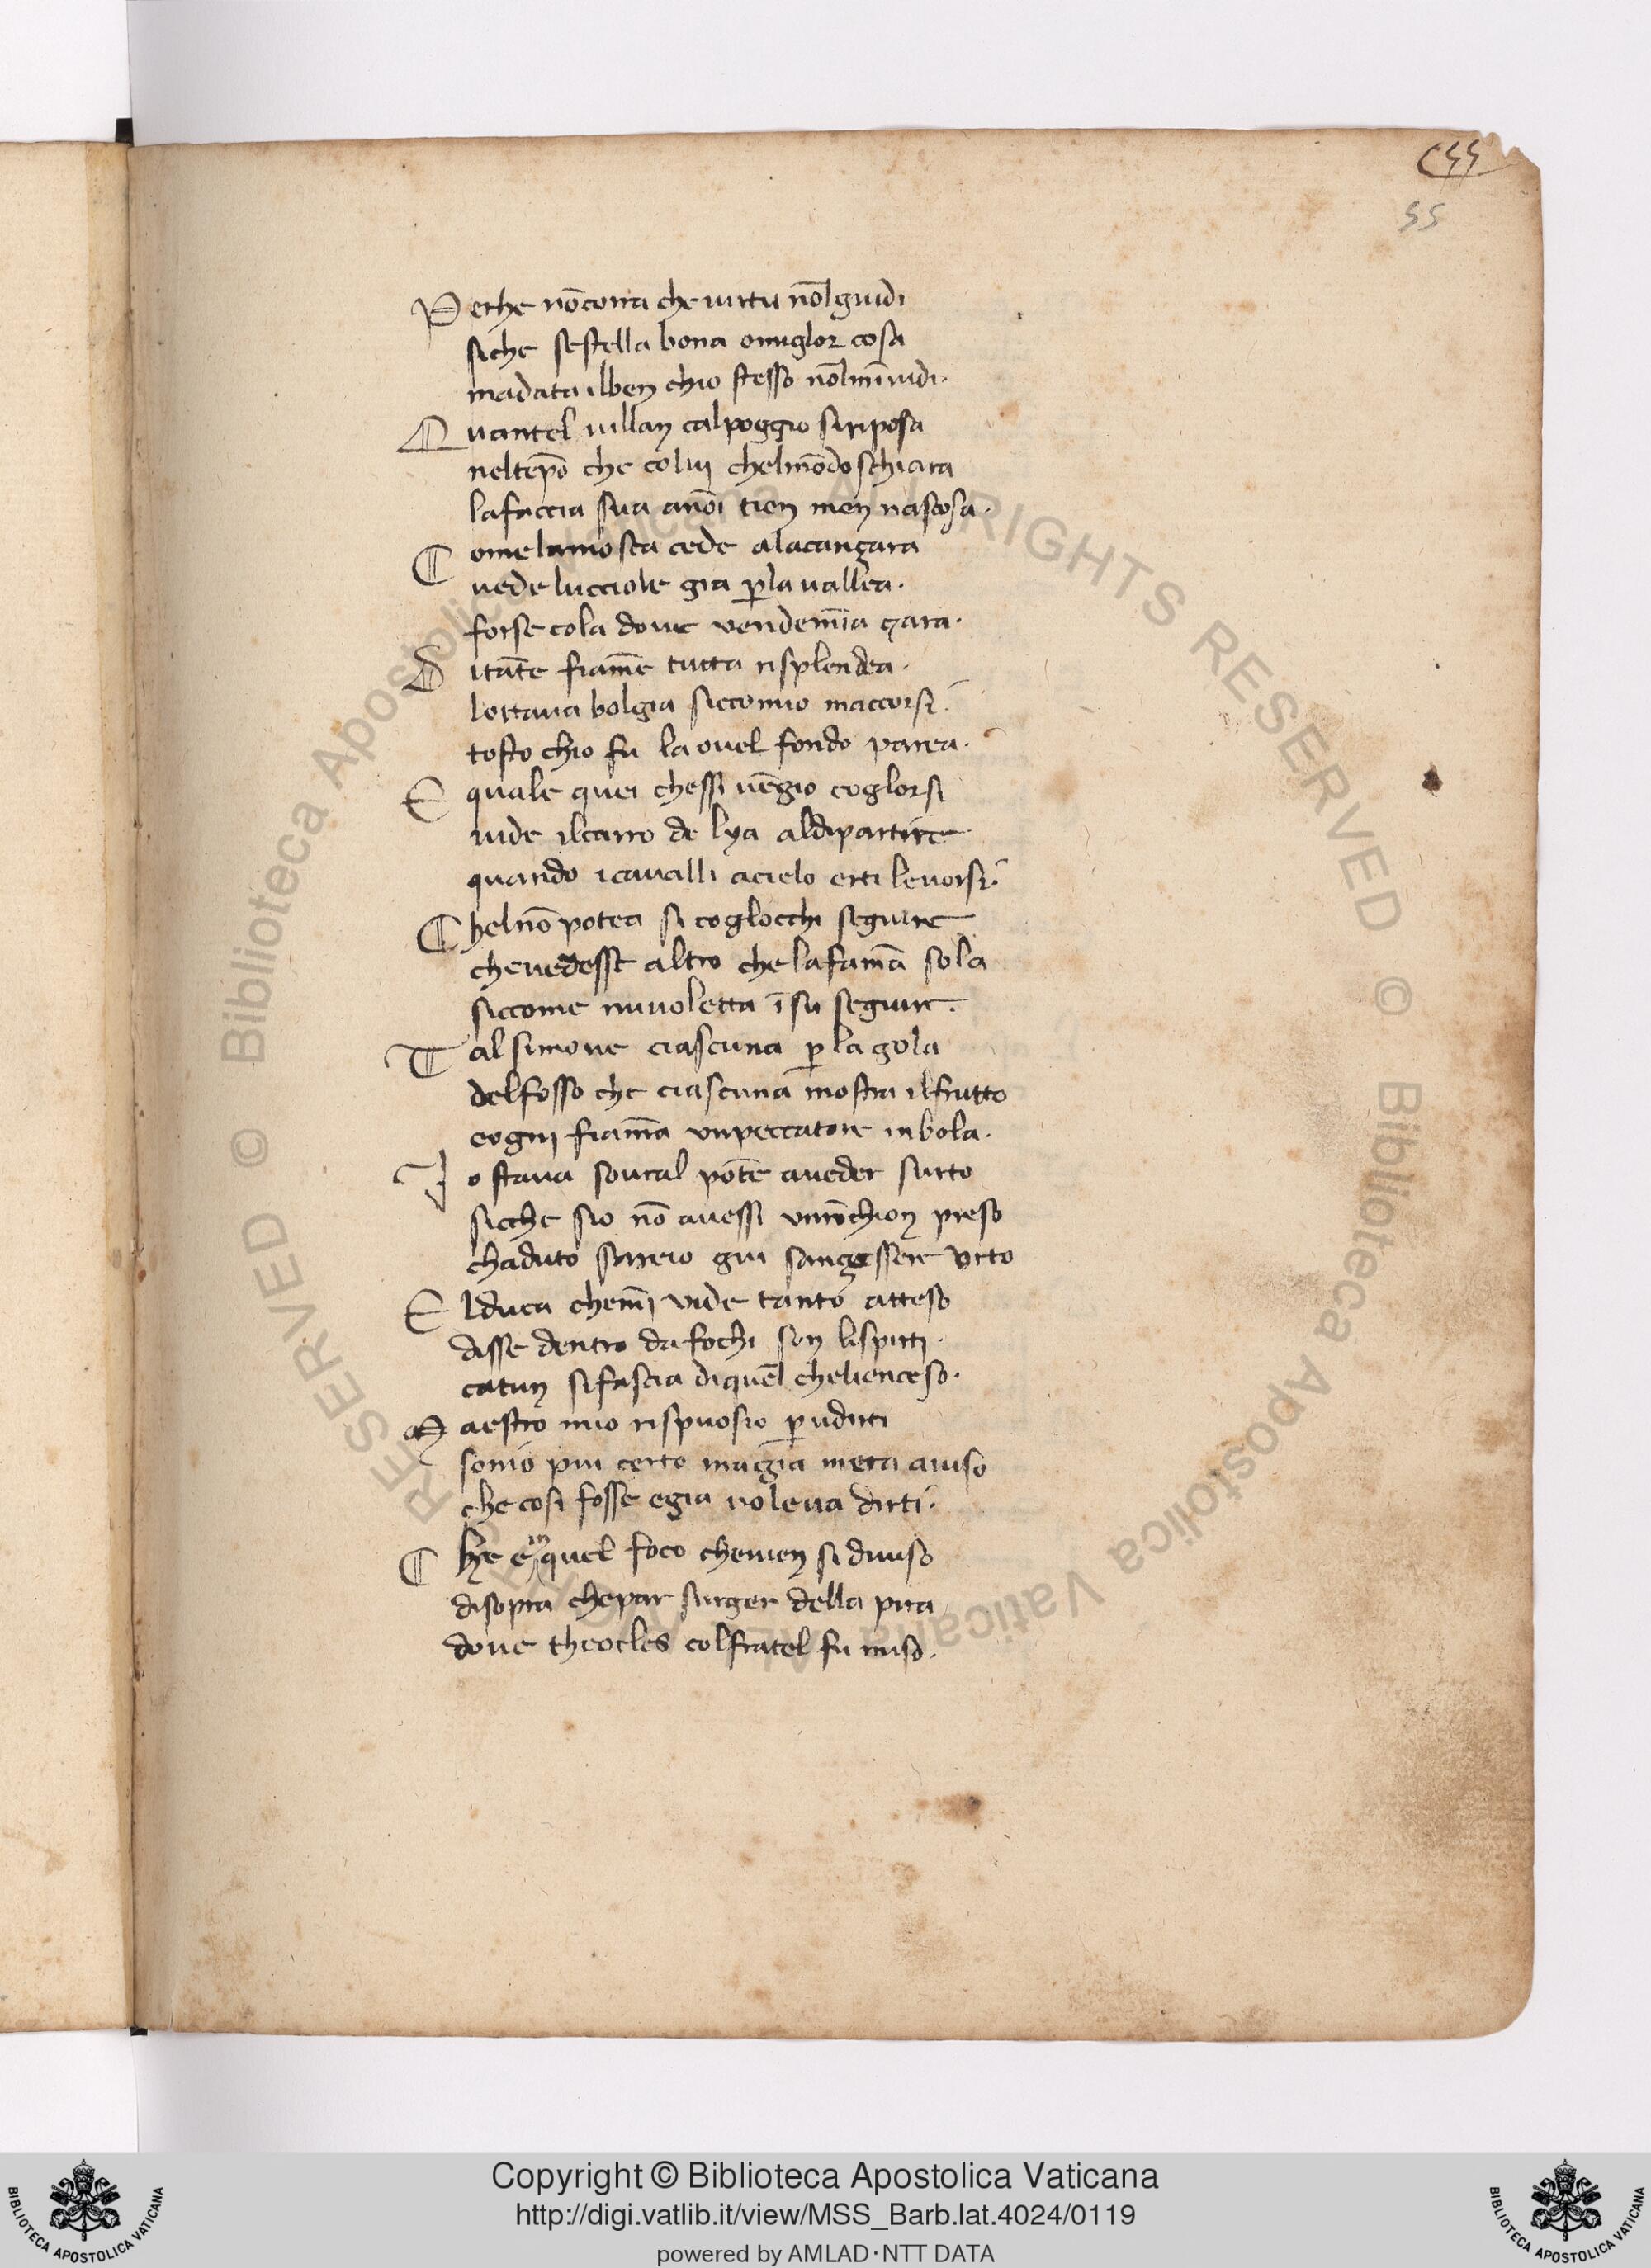 55
55
Perche nōcorra che uirtu nōl guidi
siche se stella bona o miglor cosa
madata ilben chio stesso nōlmīuidi.
Quantel uillan calpoggio siriposa
neltēpo che colui chelmōdo schiara
lafaccia sua anoi tien men nascosa.
Come lamosca cede alacançara
uede lucciole gia ꝑla uallea.
forse cola doue vendemīa ꝫara.
Ditāte fiamē tutta risplendea.
lottaua bolgia siccomio maccorsi.
tosto chio fu la ouel fondo parea.
E quale quei chessi uēgio coglorsi
uide ilcarro de lya aldipartire
quando icaualli acielo erti leuorsi.
Chelnō potea si coglocchi seguire
cheuedesse altro che lafiamā sola
siccome nuuoletta ī su seguire.
Tal simoue ciascuna ꝑ la gola
delfosso che ciascuna mostra ilfrutto
eogni fiamā vnpeccatore inbola.
Io staua soural pōte aueder surto
sicche sio nō auessi vnrōchion preso
chaduto sarreio giu sançessere vrto
E lduca chemī vide tanto atteso
disse dentro da fochi son lispirti.
catun sifascia diquel cheliencieso.
Maestro mio rispuosio ꝑ udirti
sonio piu certo magia mera auiso
che cosi fosse egia uoleua dirti.
Che e in quel foco cheuien si diuiso
disopra chepar surger della pira
doue theocles colfratel fu miso.
Copyright © Biblioteca Apostolica Vaticana
http://digi.vatlib.it/view/MSS_Barb.lat.4024/0119
powered by AMLAD·NTT DATA
BIBLIOTECA APOSTOLICA VATICANA
BIBLIOTECA APOSTOLICA VATICANA
© Biblioteca Apostolica Vaticana ALL RIGHTS RESERVED
© Biblioteca Apostolica Vaticana ALL RIGHTS RESERVED